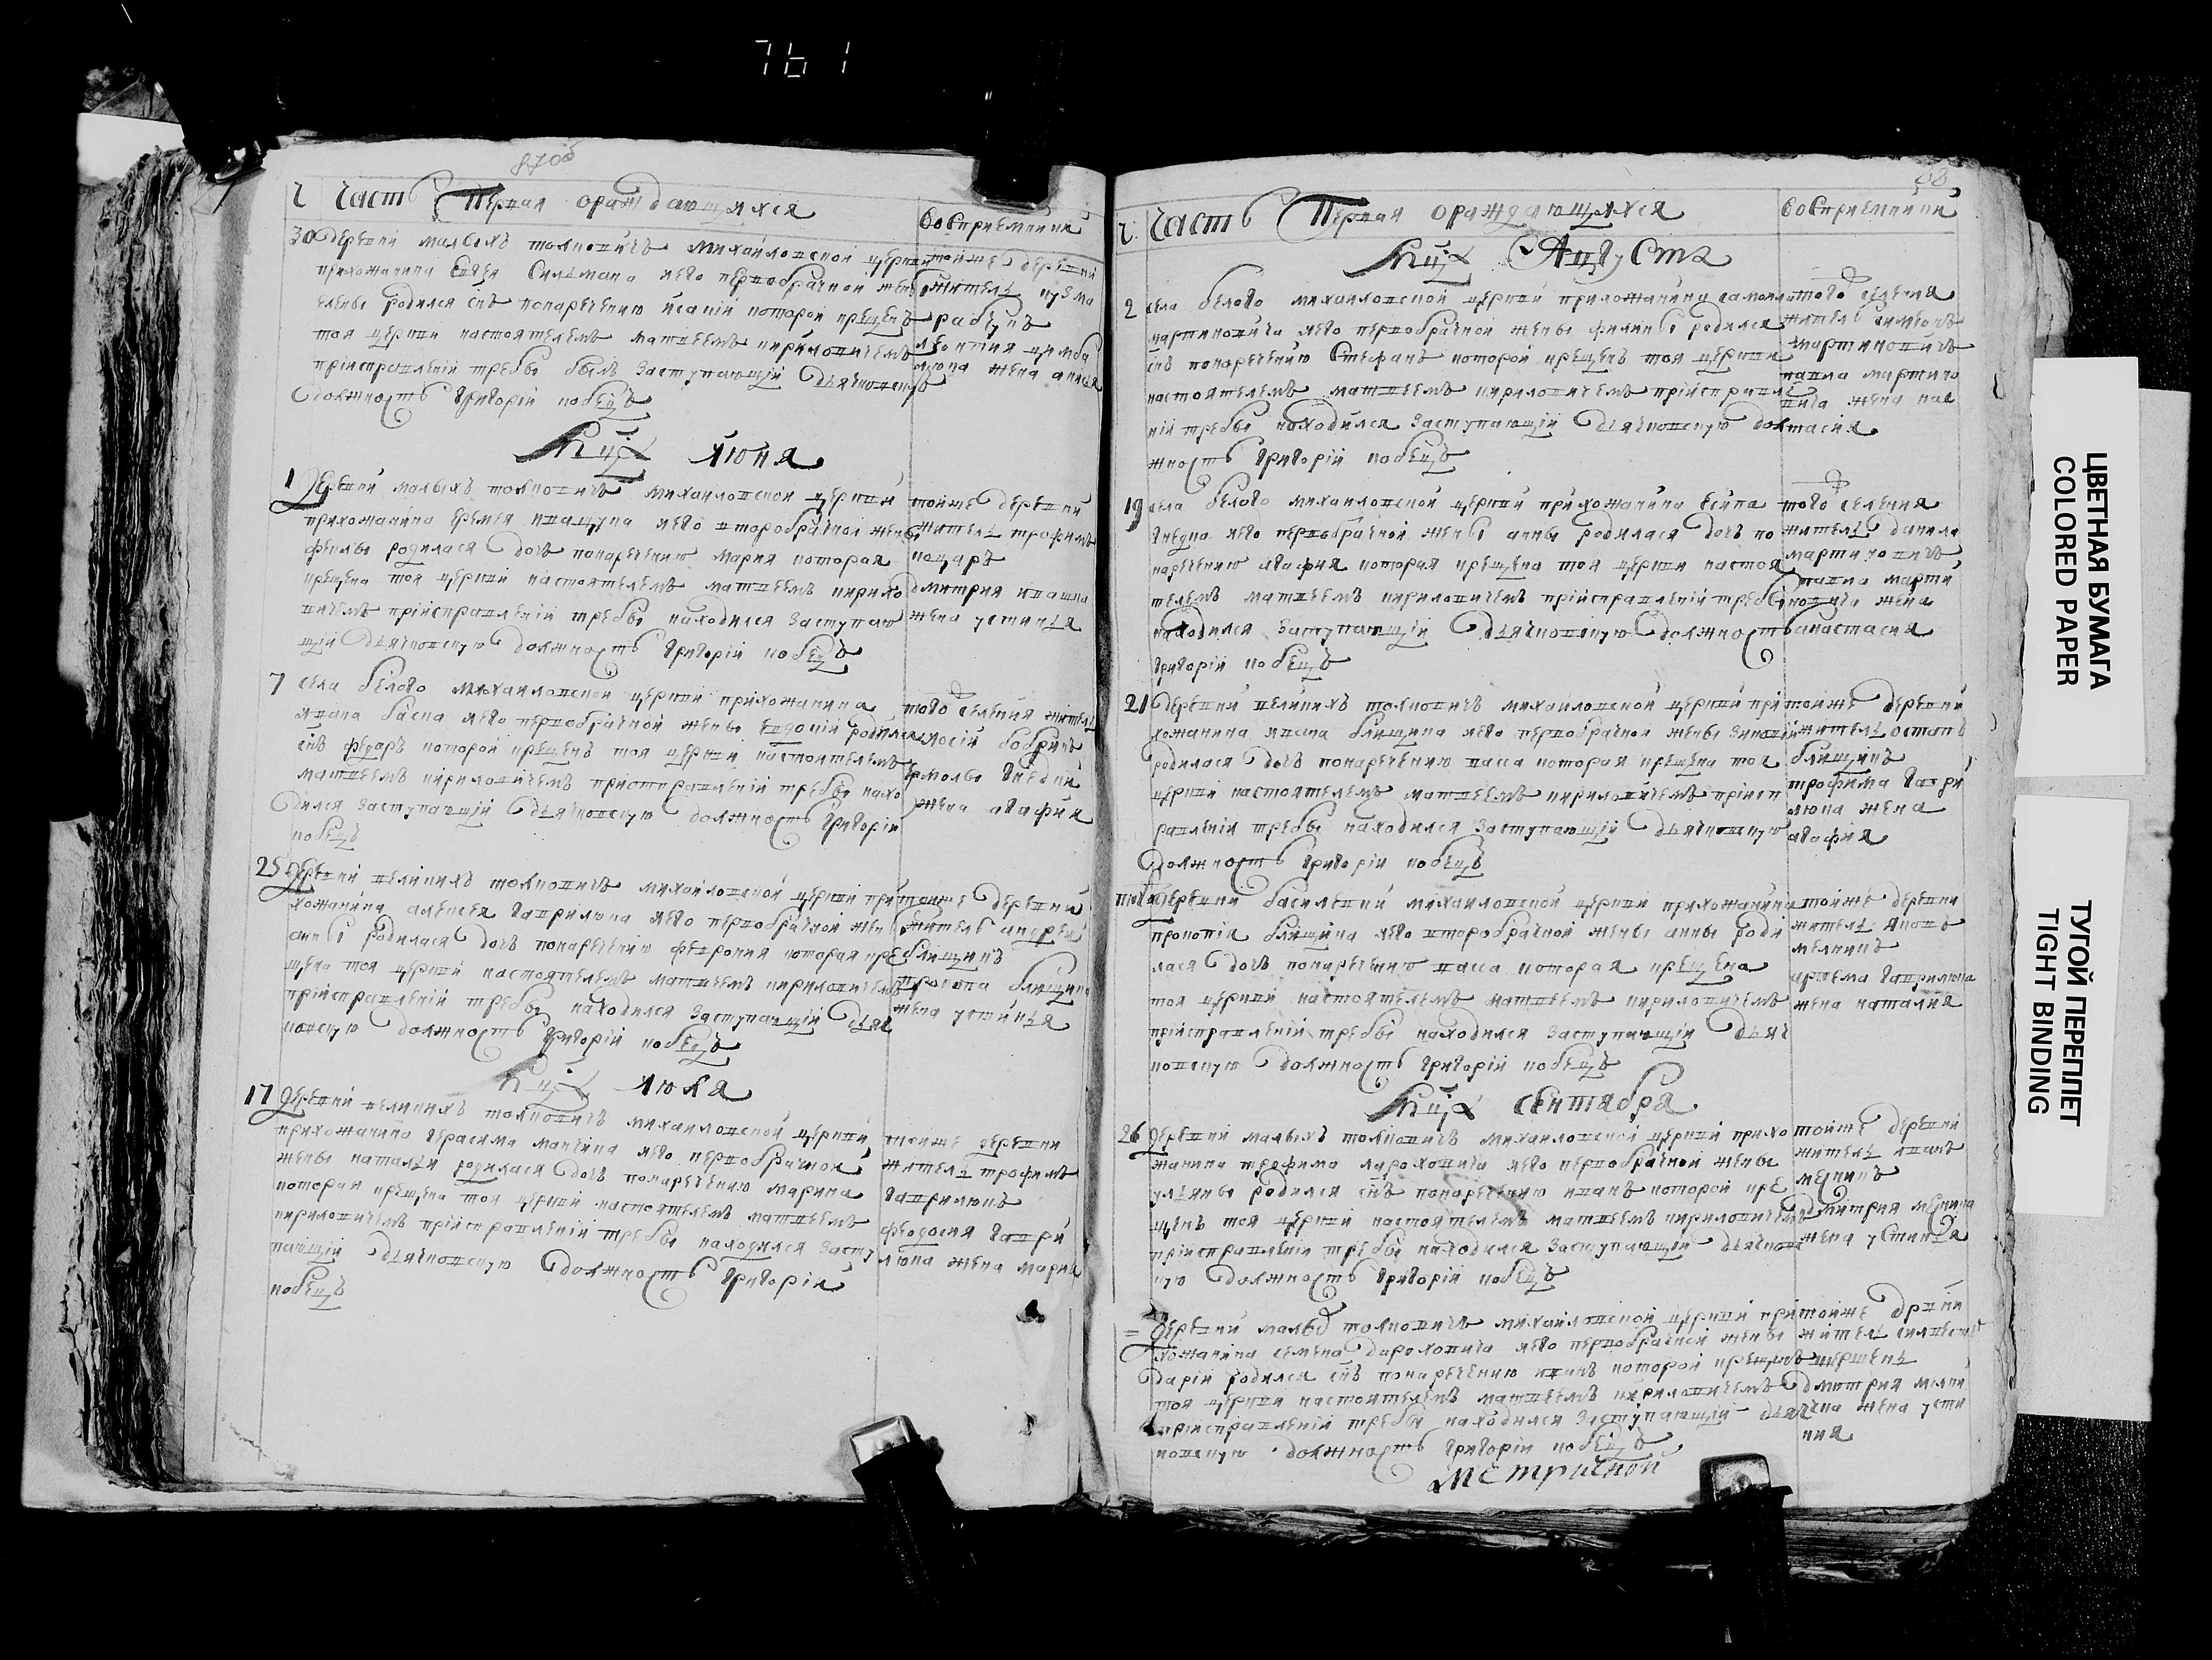 761
87об
Ч Часть Первая о раждающихся
Восприемники
30 деревни малыхъ толковичъ михайловской церкви
прихожанина Силимана его первобрачной жены
елены родился снъ понаречению исакий которой крещенъ
тоя церкви настоятелемъ матвеемъ кириловичемъ
приисправлений требы былъ заступающий дьячковскую
должность григорий кобецъ
тойже деревни
житель кузма
рабчукъ
леонтия цимба
люка жена
Мцъ Июня
1 Деревни малыхъ толковичъ михайловской церкви
прихожанина еремея кващука его второбрачной жены
феклы родилася дочъ понаречению мария которая
крещена тоя церкви настоятелемъ матвеемъ кирило
вичемъ приисправлений требы находился заступаю
щий дьячковскую должность григорий кобецъ
тойже деревни
житель трофимъ
коцаръ
дмитрия
жена устиния
7 села белого михайловской церкви прихожанина
ивана баска его первобрачной жены евдокий родился
снъ федоръ которой крещенъ тоя церкви настоятелемъ
матвеемъ кириловичемъ приисправлений требы нахо
дился заступающий дьячковскую должность григорий
кобецъ
того селения житель
бобрикъ
ермолы гнедки
жена агафия
25 Деревни великихъ толковичъ михайловской церкви при
хожанина алексея гаврилюка его первобрачной жены
анны родилася дочъ понаречению феврония которая кре
щена тоя церкви настоятелемъ матвеемъ кириловичемъ
приисправлений требы находился заступающий дьяч
ковскую должность григорий кобецъ
тоиже деревни
житель андрей
блищикъ
прокопа блищика
жена устиния
Мцъ Июля
17 Деревни великихъ толковичъ михайловской церкви
прихожанина герасима его первобрачной
жены наталии родилася дочъ понаречению марина
которая крещена тоя церкви настоятелемъ матвеемъ
кириловичемъ приисправлений требы находился засту
пающий дьячковскую должность григорий
кобецъ
тоиже деревни
житель трофимъ
гаврилюкъ
феодосия гаври
люка жена мария
68
Ч. Часть Первая о раждающихся
Восприемники
Мцъ Августа
2 села белого михайловской церкви прихожанина
мартиновича его первобрачной жены родился
снъ понаречению Стефанъ которой крещенъ тоя церкви
настоятелемъ матвеемъ кириловичемъ приисправле
ний требы находился заступающий дьячковскую дол
жность григорий кобецъ
того селения
житель симеонъ
мартиновичъ
павла мартино
вича жена нас
тасия
19 села белого михайловской церкви прихожанина есипа
гнедка его первобрачной жены анны родилася дочъ по
наречению агафия которая крещена тоя церкви настоя
телемъ матвеемъ кириловичемъ приисправлений требы
находился заступающий дьячковскую должность
григорий кобецъ
того селения
житель данила
мартиновичъ
павла марти
новича жена
анастасия
21 Деревни великихъ толковичъ михайловской церкви при
хожанина ивана блищика его первобрачной жены
родилася дочъ понаречению васа которая крещена тоя
церкви настоятелемъ матвеемъ кириловичемъ приисп
равления требы находился заступающий дьячковскую
должность григорий кобецъ
тойже деревни
житель остапъ
блищикъ
трофима гаври
люка жена
агафия
деревни василевки михайловской церкви прихожанина
прокопия блищика его второбрачной жены анны роди
лася дочъ понаречению васа которая крещена
тоя церкви настоятелемъ матвеемъ кириловичемъ
приисправлений требы находился заступающий дьяч
ковскую должность григорий кобецъ
тойже деревни
житель яковъ
мелникъ
артема гаврилюка
жена наталия
Мцъ Сентября
26 Деревни малыхъ толковичъ михайловской церкви прихо
жанина трофима его первобрачной жены
ульяны родился снъ понаречению иванъ которой кре
щенъ тоя церкви настоятелемъ матвеемъ кириловичемъ
приисправлений требы находился заступающий дьячковс
кую должность григорий кобецъ
тойже деревни
житель иванъ
мелникъ
дмитрия мелника
жена устиния
= Деревни малы толковичъ михайловской церкви при
хожанина семена его первобрачной жены
дарий родился снъ понаречению иванъ которой крещенъ
тоя церкви настоятелемъ матвеемъ кириловичемъ
приисправлений требы находился заступающий дьяч
ковскую должность григорий кобецъ
тойже
житель
дмитрия мелни
чка жена усти
ния
Метричной
ЦВЕТНАЯ БУМАГА
COLORED PAPER
ТУГОЙ ПЕРЕПЛЕТ
TIGHT BINDING